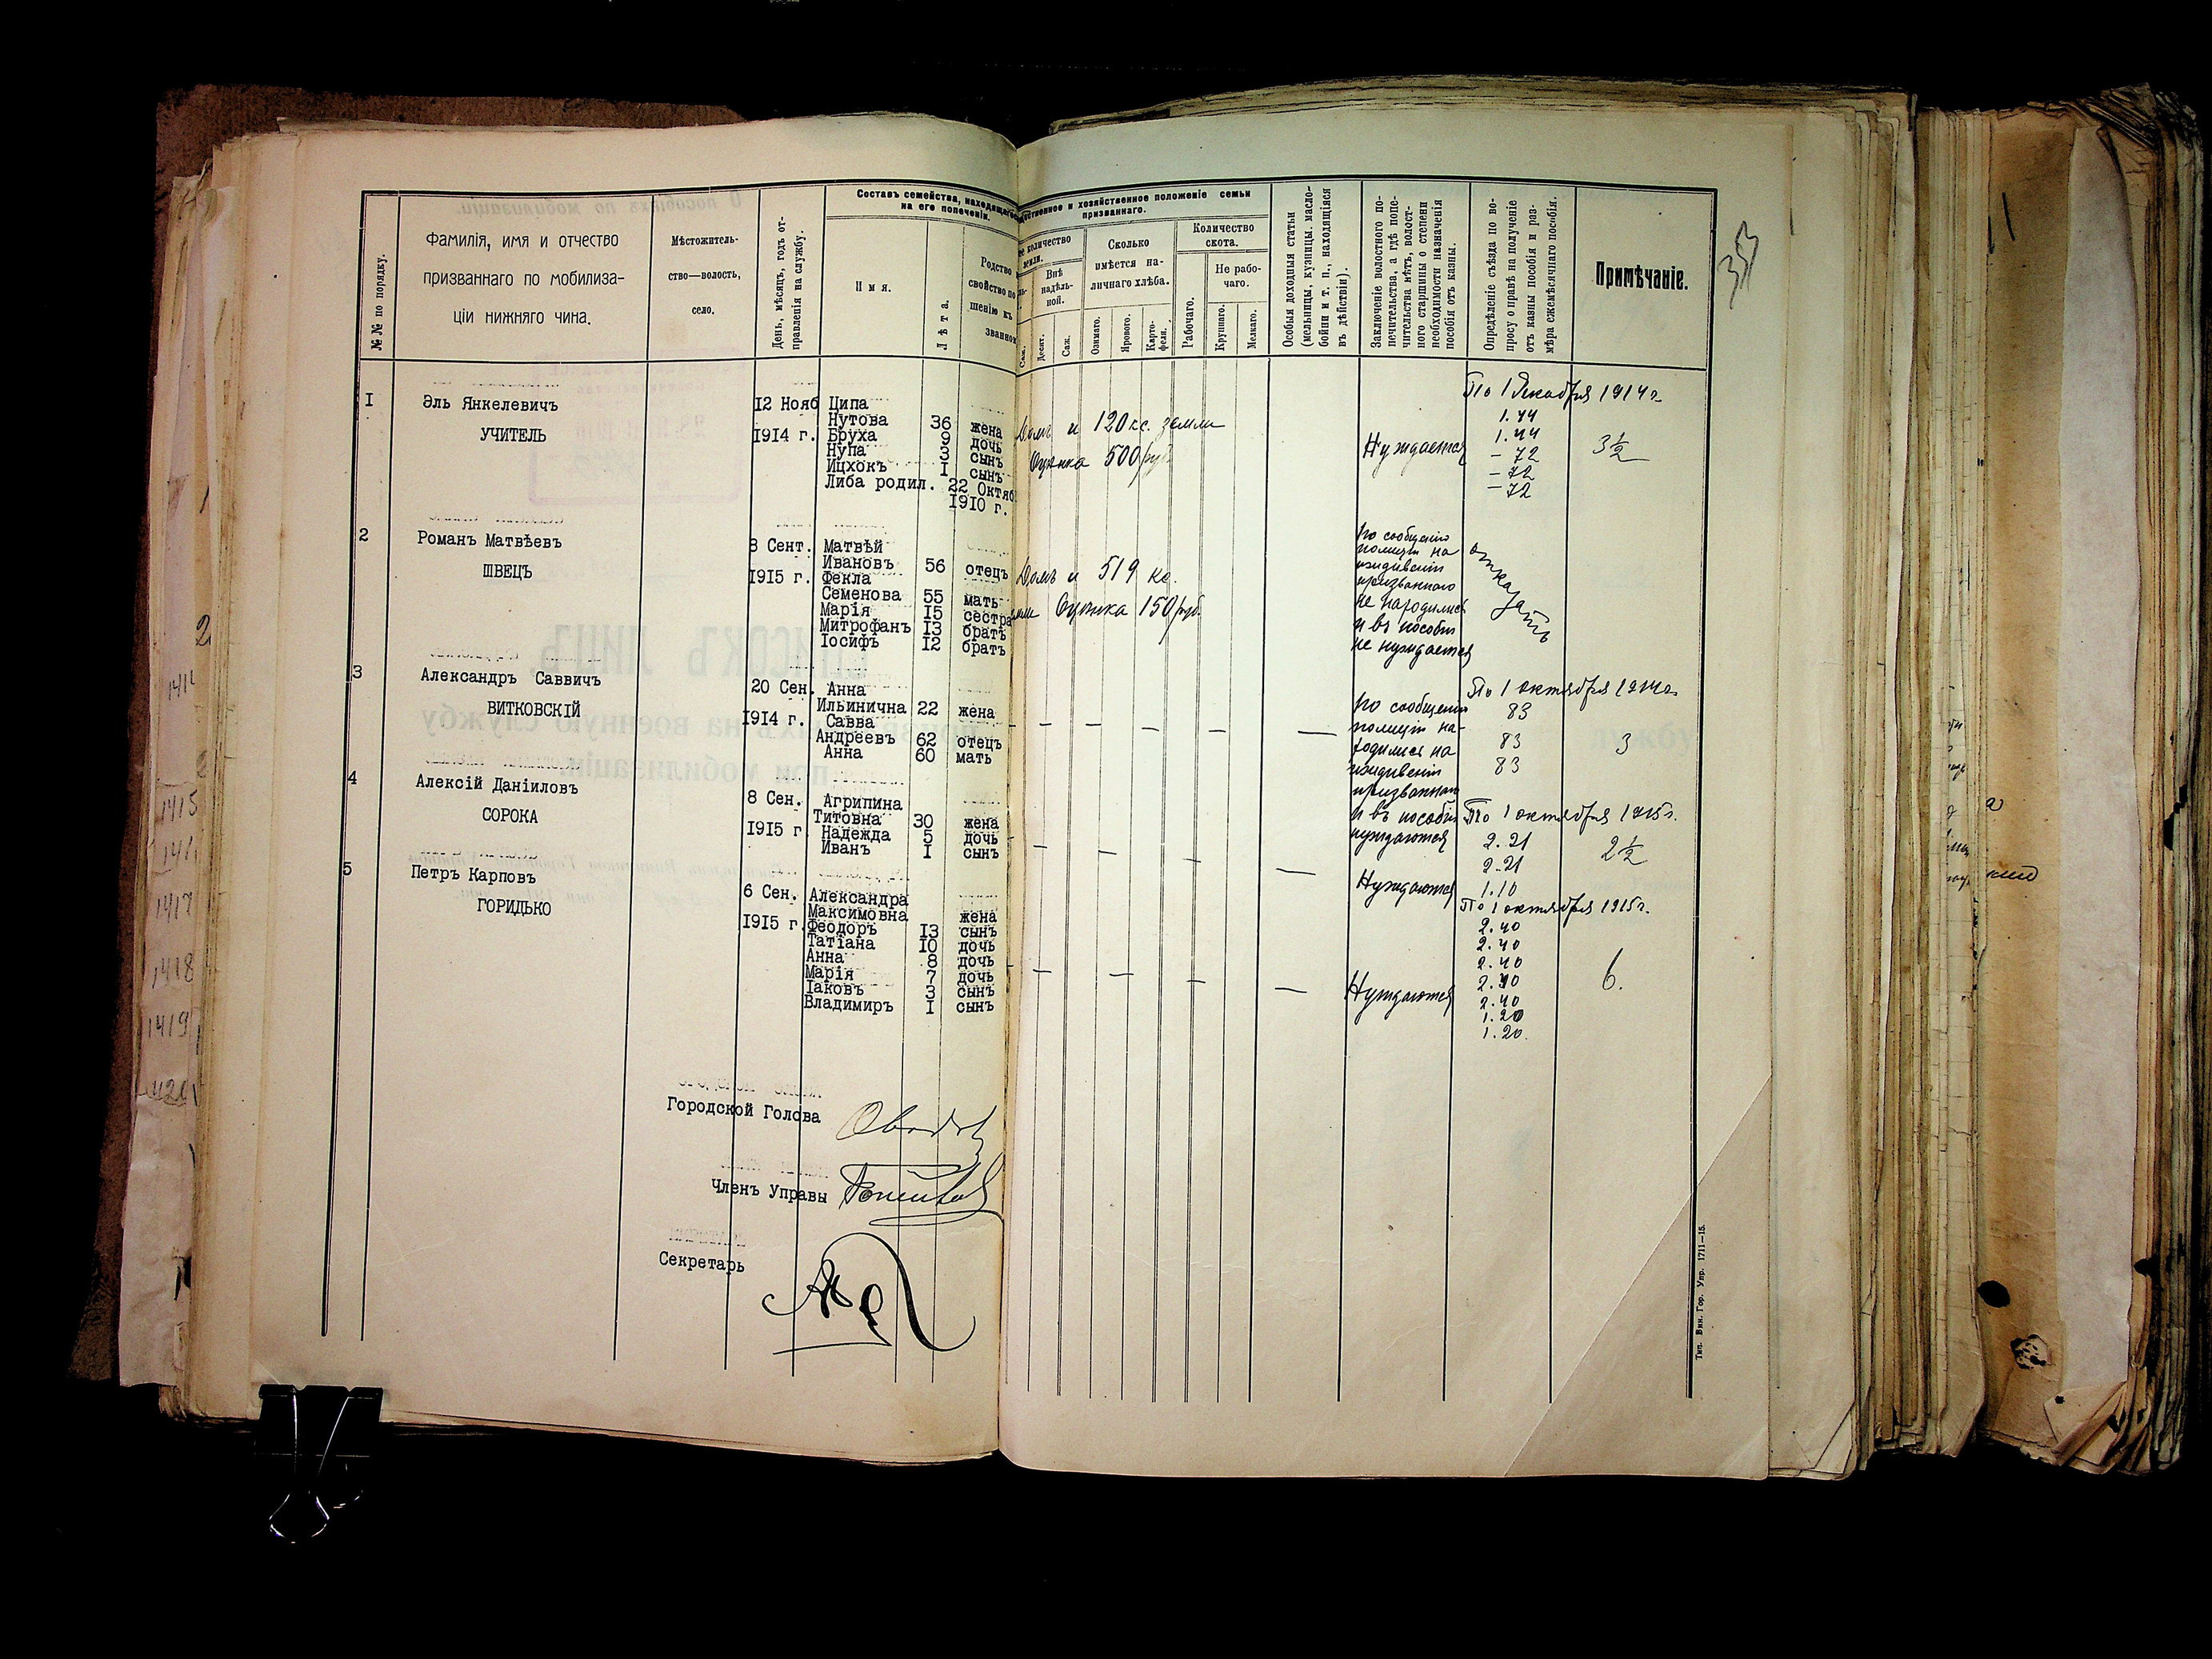 Составъ семейства, находящагося
на его попеченіи.
№№ по порядку.
Фамилія, имя и отчество
призваннаго по мобилиза-
ціи нижняго чина.
Мѣстожитель-
ство—волость,
село.
День, мѣсяцъ, годъ от-
правленія на службу.
Имя.
Лѣта.
Родство
свойство по
шенію къ
званном
ственное и хозяйственное положеніе семьи
призваннаго.
количество
земли.
Внѣ
надѣль-
ной.
Саж.
Десят.
Саж.
Сколько
имѣется на-
личнаго хлѣба.
Озимаго.
Яроваго.
Карто-
феля.
Количество
скота.
Рабочаго.
Не рабо-
чаго.
Крупнаго.
Мелкаго.
Особыя доходныя статьи
(мельницы, кузницы, масло-
бойни и т. п., находящіяся
въ дѣйствіи).
Заключеніе волостного по-
печительства, а гдѣ попе-
чительства нѣтъ, волост-
ного старшины о степени
необходимости назначенія
пособія отъ казны.
Опредѣленіе съѣзда по во-
просу о правѣ на полученіе
отъ казны пособія и раз-
мѣра ежемѣсячнаго пособія.
Примѣчаніе.
353
I
Эль Янкелевичъ
УЧИТЕЛЬ
12 Нояб
1914 г.
Ципа
Нутова 36 жена
Бруха 9 дочь
Нупа 3 сынъ
Ицхокъ I сынъ
Либа родил. 22 Октяб
1910 г.
Домъ и 120 кс. земли
Оцѣнка 500 руб.
Нуждается
По 1 Декабря 1914 г.
1.44
1.44
- 72
- 72
- 72
3½
2
Романъ Матвѣевъ
ШВЕЦЪ
8 Сент.
1915 г.
Матвѣй
Ивановъ 56 отецъ
Фекла
Семенова 55 мать
Марія 15 сестра
Митрофанъ 13 братъ
Іосифъ 12 братъ
Домъ и 519 кс.
земли Оцѣнка 150 руб.
по сообщенію
полиціи на
иждивеніи
призваннаго
не находились
и въ пособіи
не нуждается
отказать
3
Александръ Саввичъ
ВИТКОВСКІЙ
20 Сен.
1914 г.
Анна
Ильинична 22 жена
Савва
Андреевъ 62 отецъ
Анна 60 мать
по сообщенію
полиціи на-
ходились на
иждивеніи
призваннаго
и въ пособіи
нуждаются
По 1 октября 1914 г.
83
83
83
3
4
Алексій Даніиловъ
СОРОКА
8 Сен.
1915 г
Агрипина
Титовна 30 жена
Надежда 5 дочь
Иванъ I сынъ
Нуждаются
По 1 октября 1915 г.
2.21
2.21
1.10
2½
5
Петръ Карповъ
ГОРИДЬКО
6 Сен.
1915 г.
Александра
Максимовна жена
Феодоръ 13 сынъ
Татіана 10 дочь
Анна 8 дочь
Марія 7 дочь
Іаковъ 3 сынъ
Владимиръ I сынъ
Нуждаются
По 1 октября 1915 г.
2.40
2.40
2.40
2.40
2.40
1.20
1.20.
6.
Городской Голова
Членъ Управы
Секретарь
Тип. Вин. Гор. Упр. 1711—15.
1415
1417
1418
1419